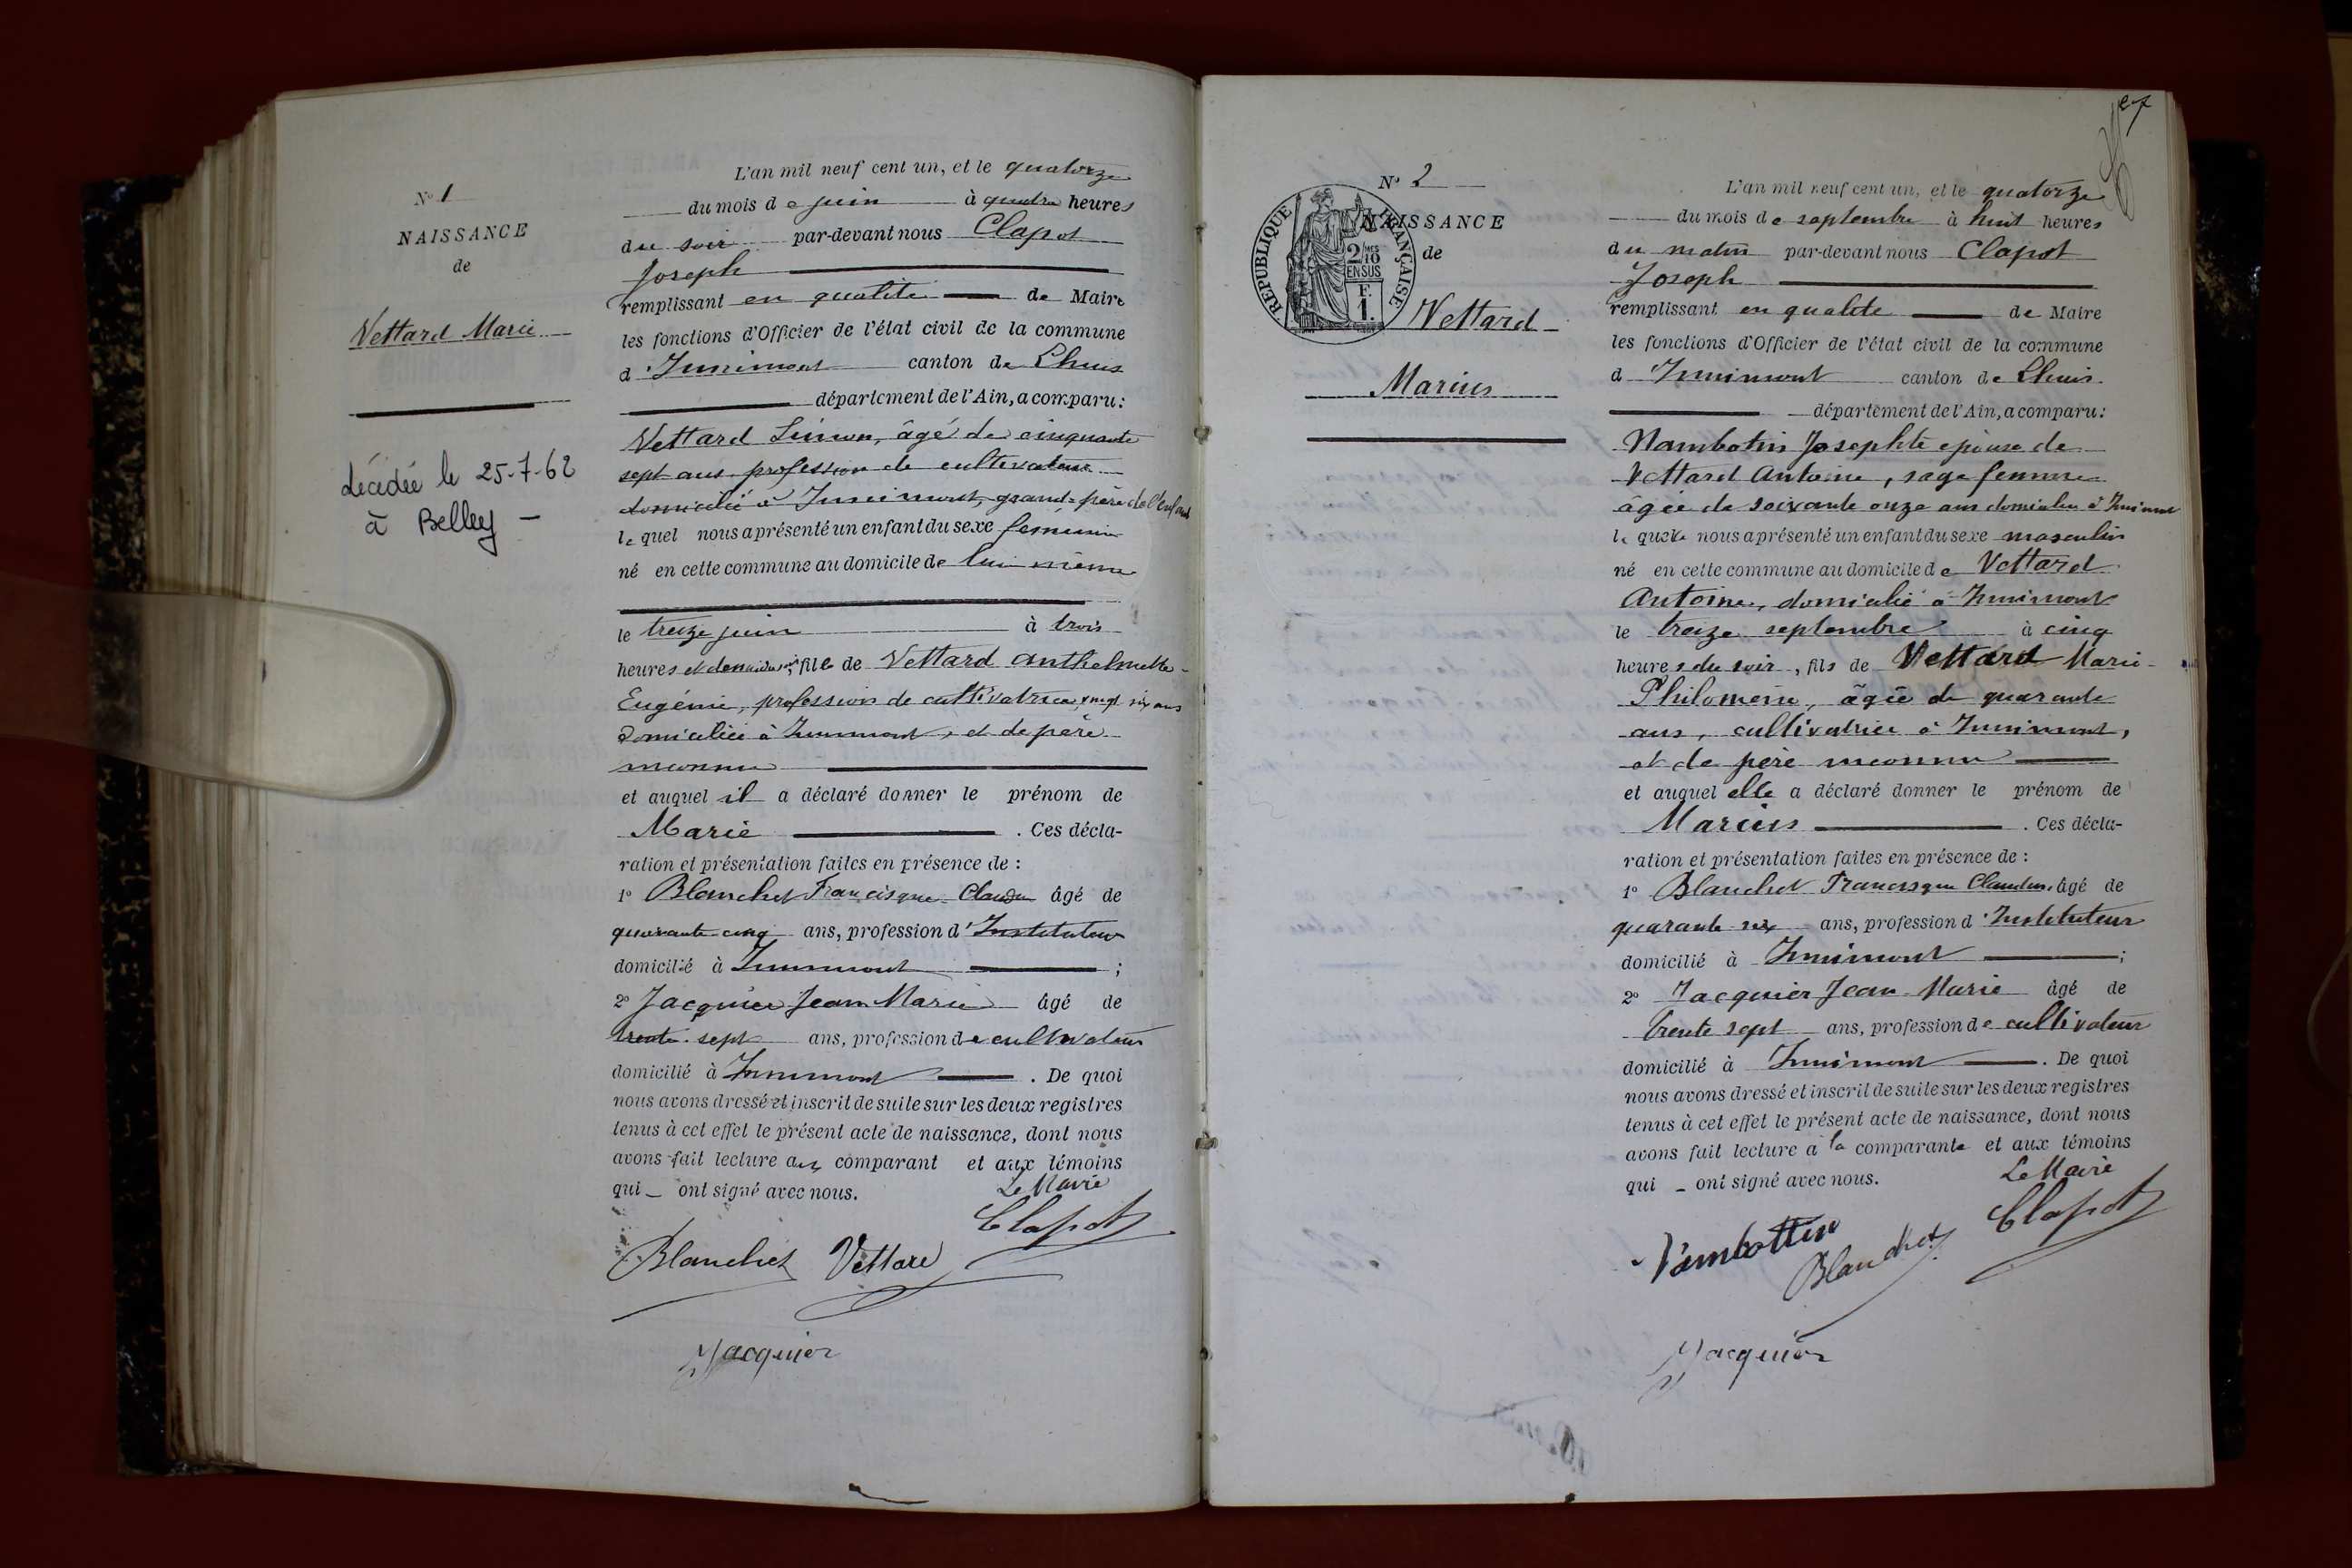 N° 1
NAISSANCE
de
Vettard Marie
décédée le 25-7-62
à Belley -
L'an mil neuf cent un, et le quatorze
du mois de juin à quatre heures
du soir par-devant nous Clapot
Joseph
remplissant en qualité de Maire
les fonctions d'Officier de l'état civil de la commune
d'Innimont canton de Lhuis
département de l'Ain, a comparu :
Vettard Simon, âgé de cinquante
sept ans profession de cultivateur
domicilié à Innimont, grand-père de l'enfant
lequel nous a présenté un enfant du sexe féminin
né en cette commune au domicile de lui-même
le treize juin à trois
heures et demie du soir, fille de Vettard Anthelmette
Eugénie, profession de cultivatrice, vingt six ans
domiciliée à Innimont, et de père
inconnu
et auquel il a déclaré donner le prénom de
Marie . Ces décla-
ration et présentation faites en présence de :
1° Blanchet Francisque Claudius âgé de
quarante-cinq ans, profession d'Instituteur
domicilié à Innimont ;
2° Jacquier Jean Marie âgé de
trente-sept ans, profession de cultivateur
domicilié à Innimont . De quoi
nous avons dressé et inscrit de suite sur les deux registres
tenus à cet effet le présent acte de naissance, dont nous
avons fait lecture aux comparant et aux témoins
qui - ont signé avec nous.
Le Maire
Clapot
Blanchet Vettard
Jacquier
27
N° 2
NAISSANCE
de
RÉPUBLIQUE FRANÇAISE
2/10 MES
EN SUS
F.
1.
Vettard
Marius
L'an mil neuf cent un, et le quatorze
du mois de septembre à huit heures
du matin par-devant nous Clapot
Joseph
remplissant en qualité de Maire
les fonctions d'Officier de l'état civil de la commune
d'Innimont canton de Lhuis
département de l'Ain, a comparu :
Nambotin Josephte épouse de
Vettard Antoine, sage femme
âgée de soixante onze ans domiciliée à Innimont
laquelle nous a présenté un enfant du sexe masculin
né en cette commune au domicile de Vettard
Antoine, domicilié à Innimont
le treize septembre à cinq
heures du soir, fils de Vettard Marie
Philomène, âgée de quarante
ans, cultivatrice à Innimont,
et de père inconnu
et auquel elle a déclaré donner le prénom de
Marius . Ces décla-
ration et présentation faites en présence de :
1° Blanchet Francisque Claudius, âgé de
quarante-six ans, profession d'Instituteur
domicilié à Innimont ;
2° Jacquier Jean-Marie âgé de
trente sept ans, profession de cultivateur
domicilié à Innimont . De quoi
nous avons dressé et inscrit de suite sur les deux registres
tenus à cet effet le présent acte de naissance, dont nous
avons fait lecture à la comparante et aux témoins
qui - ont signé avec nous.
Le Maire
Clapot
Vambottin
Blanchet
Jacquier